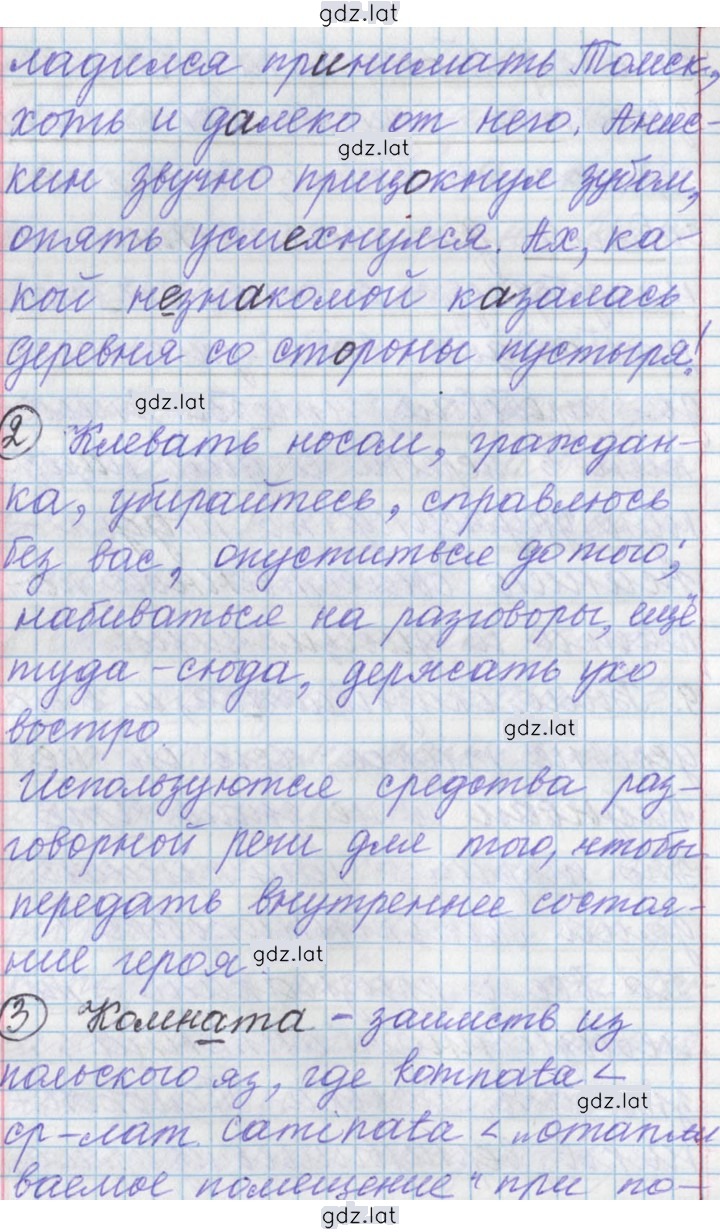 gdz.lat
ладился принимать Томск,
хоть и далеко от него. Анис-
gdz.lat
кин звучно прицокнул зубом,
опять усмехнулся. Ах, ка-
кой незнакомой казалась
деревня со стороны пустыря!
gdz.lat
2 Клевать носом, граждан-
ка, убирайтесь, справлюсь
без вас, опуститься до того;
набиваться на разговоры, ещё
туда-сюда, держать ухо
востро.
gdz.lat
Используются средства раз-
говорной речи для того, чтобы
передать внутреннее состоя-
ние героя.
gdz.lat
3 Комната – заимств из
польского яз, где komnata <
gdz.lat
ср-лат. caminata < „отапли
ваемое помещение" при по-
gdz.lat